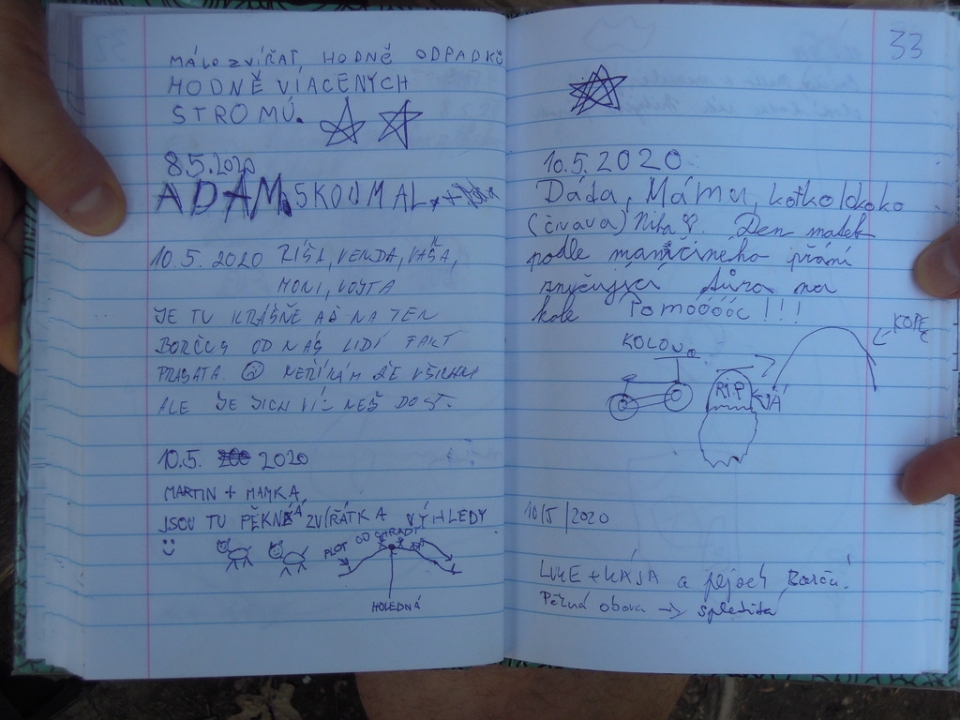 MÁLO ZVÍŘAT, HODNĚ ODPADKŮ
HODNĚ VIACENÝCH
STROMŮ.
8.5.2020
ADAM SKOUMAL
10.5.2020 RÍŠA, VENDA, VÁŠA,
MONI, VOJTA
JE TU KRÁSNĚ AŽ NA TEN
OD NÁS LIDÍ FAKT
PRASATA. NEŘÍKÁM ŽE VŠICHNI
ALE JE JICH VÍC NEŽ DOST.
10.5. 2020
MARTIN + MAYKA,
JSOU TU PĚKNÁ ZVÍŘÁTKA VÝHLEDY
PLOT OD
HOLEDNÁ
33
10.5.2020
Dáda, Mámu, kotkolokoko
(čivava) Nika. Den matek
podle maminčiného přání
zničující túra na
kole Pomóóóóc!!!
KOLO
KOPE
R.I.P JÁ
10/5/2020
LUKE + KÁJA a pejsek
obava → spletitá